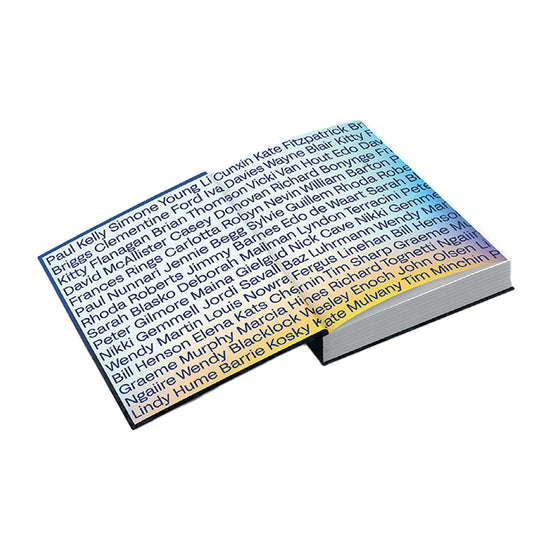 Paul Kelly Simone Young Li Cunxin Kate Fitzpatrick Br
Briggs Clementine Ford Iva Davies Wayne Blair Kitty F
Kitty Flanagan Brian Thomson Vicki Van Hout Edo Dav
David McAllister Casey Donovan Richard Bonynge Fr
Frances Rings Carlotta Robyn Nevin William Barton P
Paul Nunnari Jennie Begg Sylvie Guillem Rhoda Robe
Rhoda Roberts Jimmy Barnes Edo de Waart Sarah Bl
Sarah Blasko Deborah Mailman Lyndon Terracini Pete
Peter Gilmore Maina Gielgud Nick Cave Nikki Gemme
Nikki Gemmell Jordi Savall Baz Luhrmann Wendy Mar
Wendy Martin Louis Nowra Fergus Linehan Bill Hens
Bill Henson Elena Kats Chernin Tim Sharp Graeme M
Graeme Murphy Marcia Hines Richard Tognetti Ngaiir
Ngaiire Wendy Blacklock Wesley Enoch John Olsen Li
Lindy Hume Barrie Kosky Kate Mulvany Tim Minchin